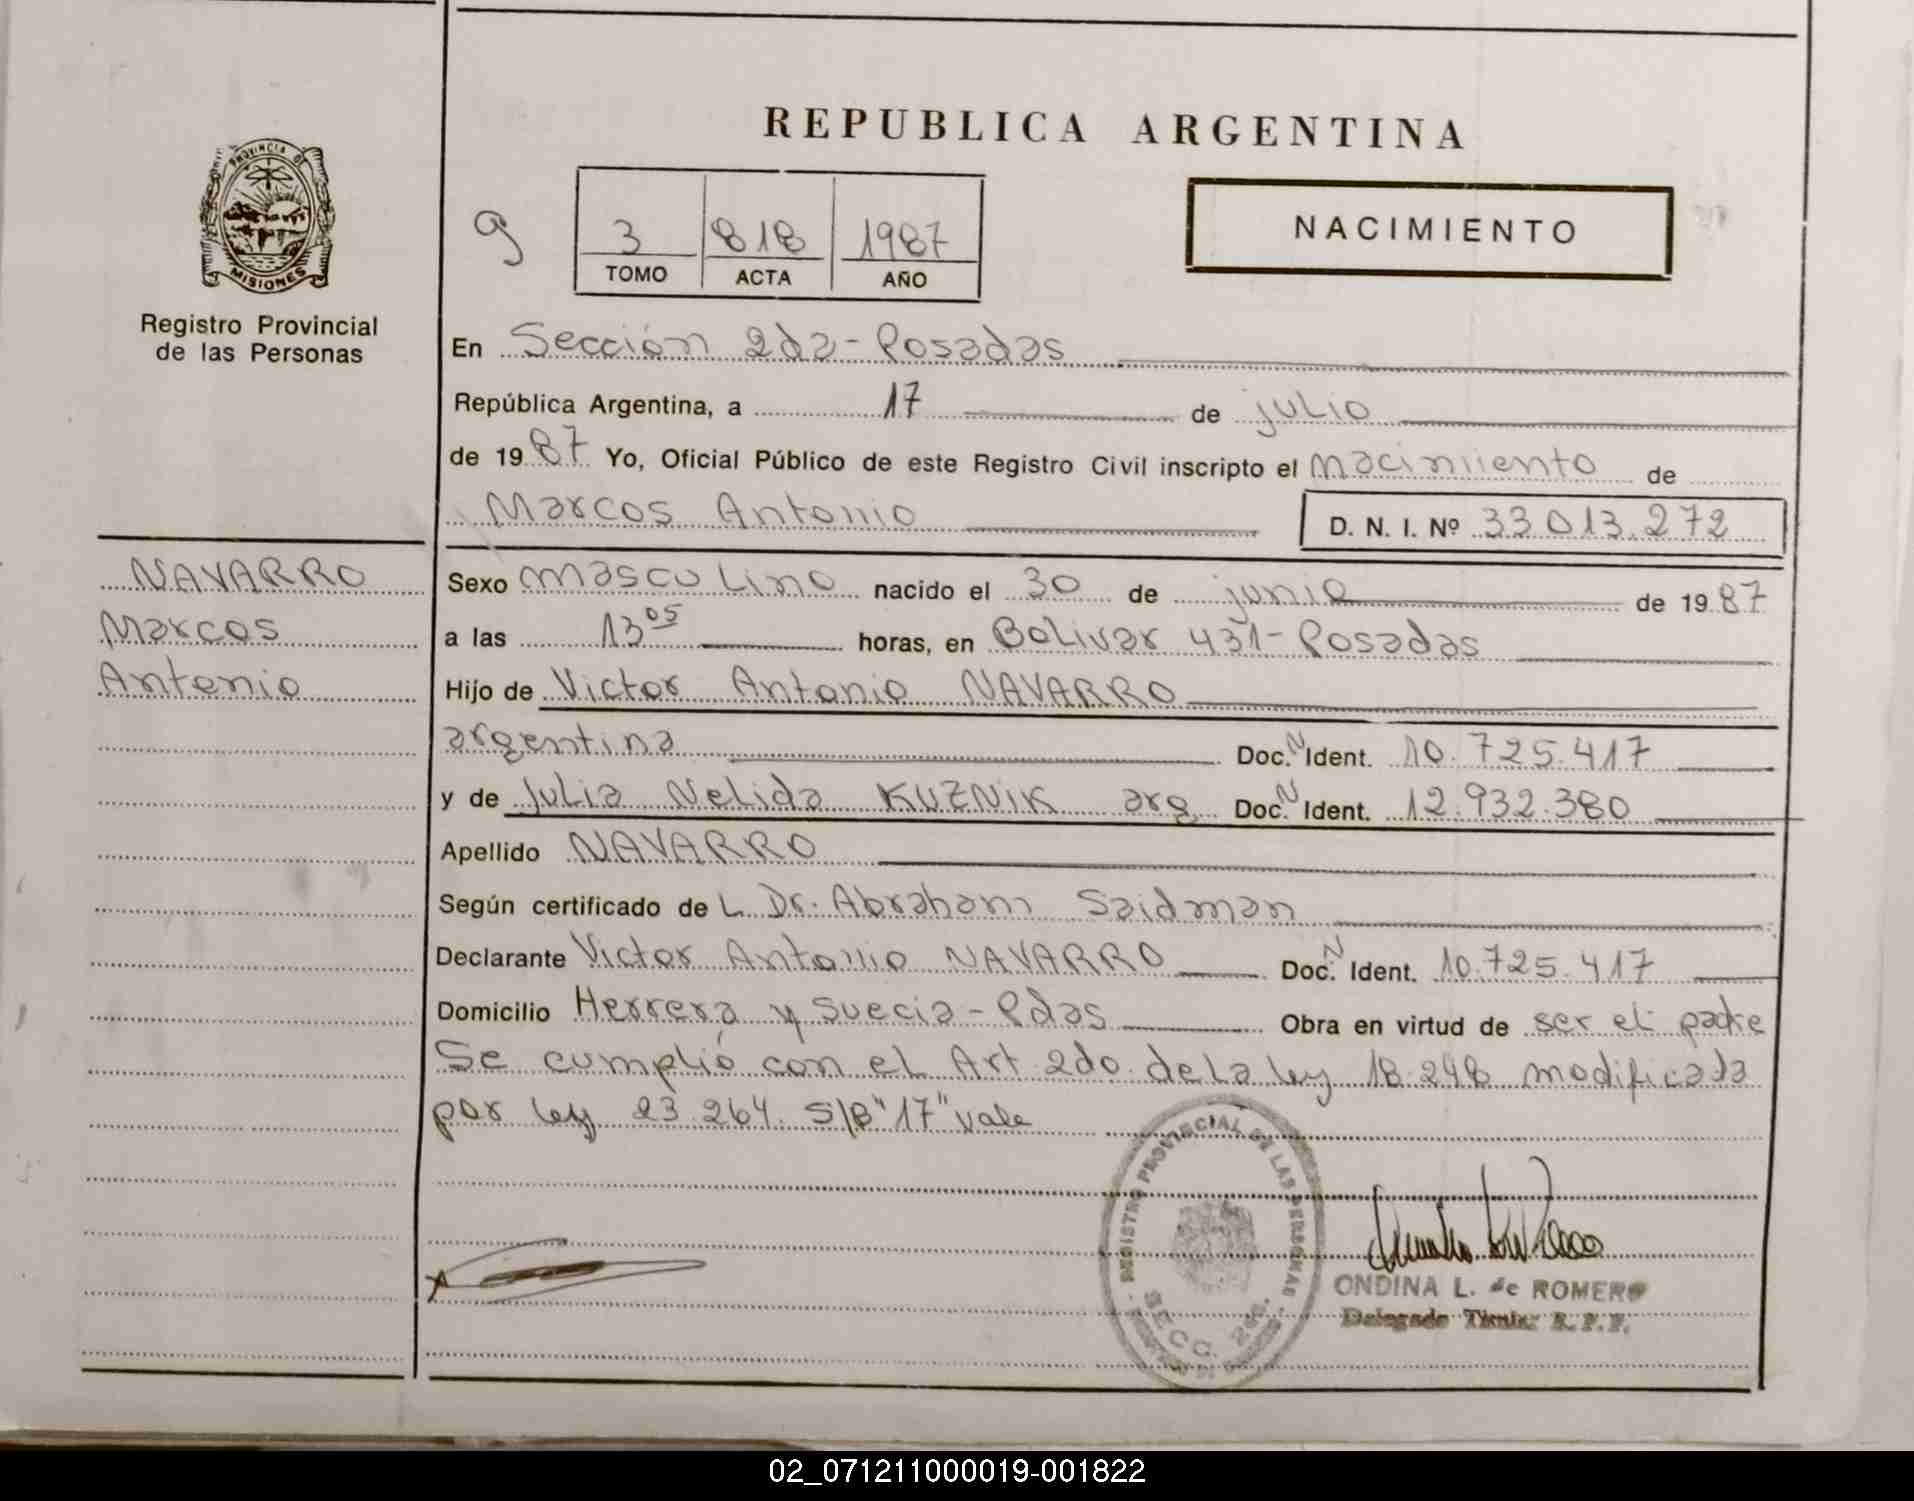 REPUBLICA ARGENTINA
PROVINCIA DE
MISIONES
Registro Provincial
de las Personas
9
3 818 1987
TOMO ACTA AÑO
NACIMIENTO
En Sección 2da - Posadas
República Argentina, a 17 de julio
de 1987 Yo, Oficial Público de este Registro Civil inscripto el nacimiento de
Marcos Antonio D. N. I. Nº 33.013.272
NAVARRO
Marcos
Antonio
Sexo masculino nacido el 30 de junio de 1987
a las 13 05 horas, en Bolivar 431 - Posadas
Hijo de Victor Antonio NAVARRO
argentina Doc. N Ident. 10.725.417
y de Julia Nelida KUZNIK arg Doc. N Ident. 12.932.380
Apellido NAVARRO
Según certificado de L Dr. Abraham Saidman
Declarante Victor Antonio NAVARRO Doc. N Ident. 10.725.417
Domicilio Herrera y Suecia - Pdas Obra en virtud de ser el padre
Se cumplió con el Art 2do de La ley 18.248 modificada
por ley 23.264. S/B "17" vale
REGISTRO PROVINCIAL DE LAS PERSONAS
SECC. 2da.
ONDINA L. de ROMERO
Delegado Titular R. P. P.
02_071211000019-001822